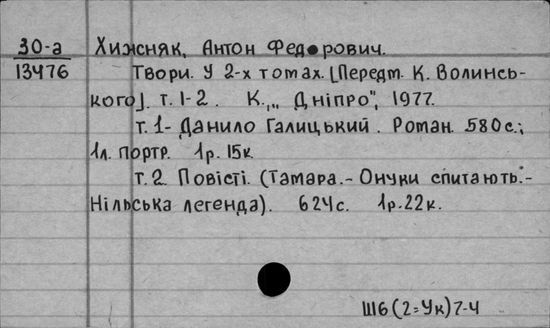 30-а Хижняк, Антон Федорович.
13476 Твори. У 2-х томах. [Передм. К. Волинсь-
кого]. т. 1-2. К., „Дніпро", 1977.
т. 1- Данило Галицький. Роман. 580с.;
1л. портр. 1р. 15к.
т. 2. Повісті. (Тамара.- Онуки спитають.-
Нільська легенда). 624с. 1р.22к.
Ш6(2=Ук)7-4